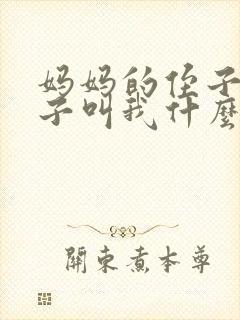 妈妈的侄子
子叫我什麼
關東煮本尊